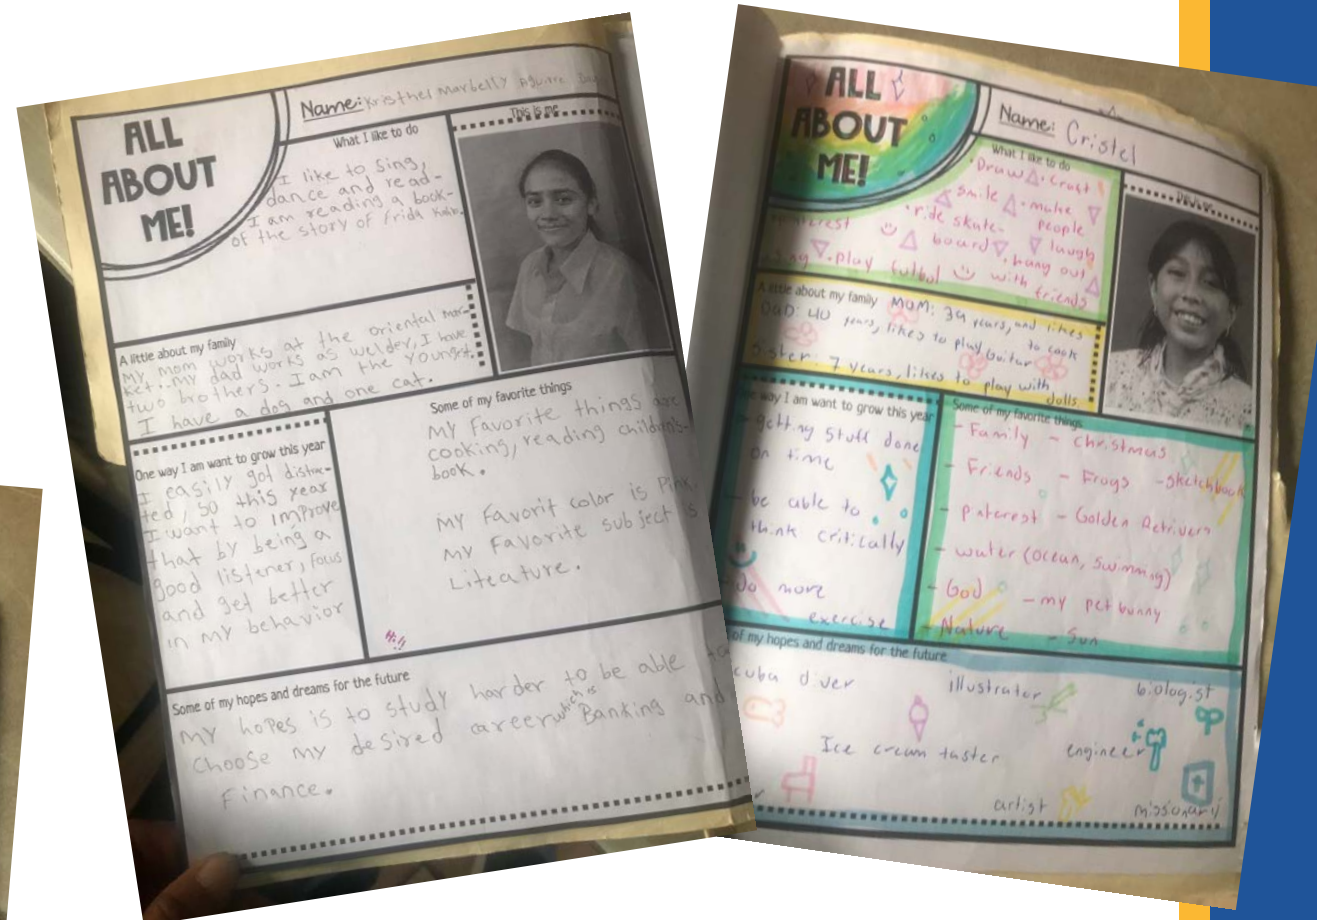 ALL
ABOUT
ME!
Name: Kristhel Marbelly Aguirre
What I like to do
I like to Sing,
dance and read-
I am reading a book-
of the story of Frida
This is me
A little about my family
My mom works at the oriental mar-
ket. My dad works as welder, I have
two brothers. I am the youngest.
I have a dog and one cat.
One way I am want to grow this year
I easily got distrac-
ted, so this year
I want to improve
that by being a
good listener, focus
and get better
in my behavior
Some of my favorite things
My Favorite things are
cooking, reading children's-
book.
My Favorit color is Pink.
My Favorite subject is
Liteature.
Some of my hopes and dreams for the future
My hopes is to study harder to be able to
choose my desired career which is Banking and
Finance.
ALL
ABOUT
ME!
Name: Cristel
What I like to do
• Draw • Craft
• smile • make
people
laugh
• ride skate-
board
• hang out
with
friends
• play futbol
A little about my family
MOM: 39 years, and likes
to cook
DAD: 40 years, likes to play Guitar
sister: 7 years, likes to play with
dolls.
way I am want to grow this year
- getting stuff done
on time
- be able to
think critically
- do more
exercise
Some of my favorite things
- Family - christmas
- Friends - Frogs - sketchbook
- pnterest - Golden Retrivers
- water (ocean, swimming)
- God - my pet bunny
- Nature - Sun
of my hopes and dreams for the future
cuba diver illustrator biologist
Ice cream taster engineer
artist missionary